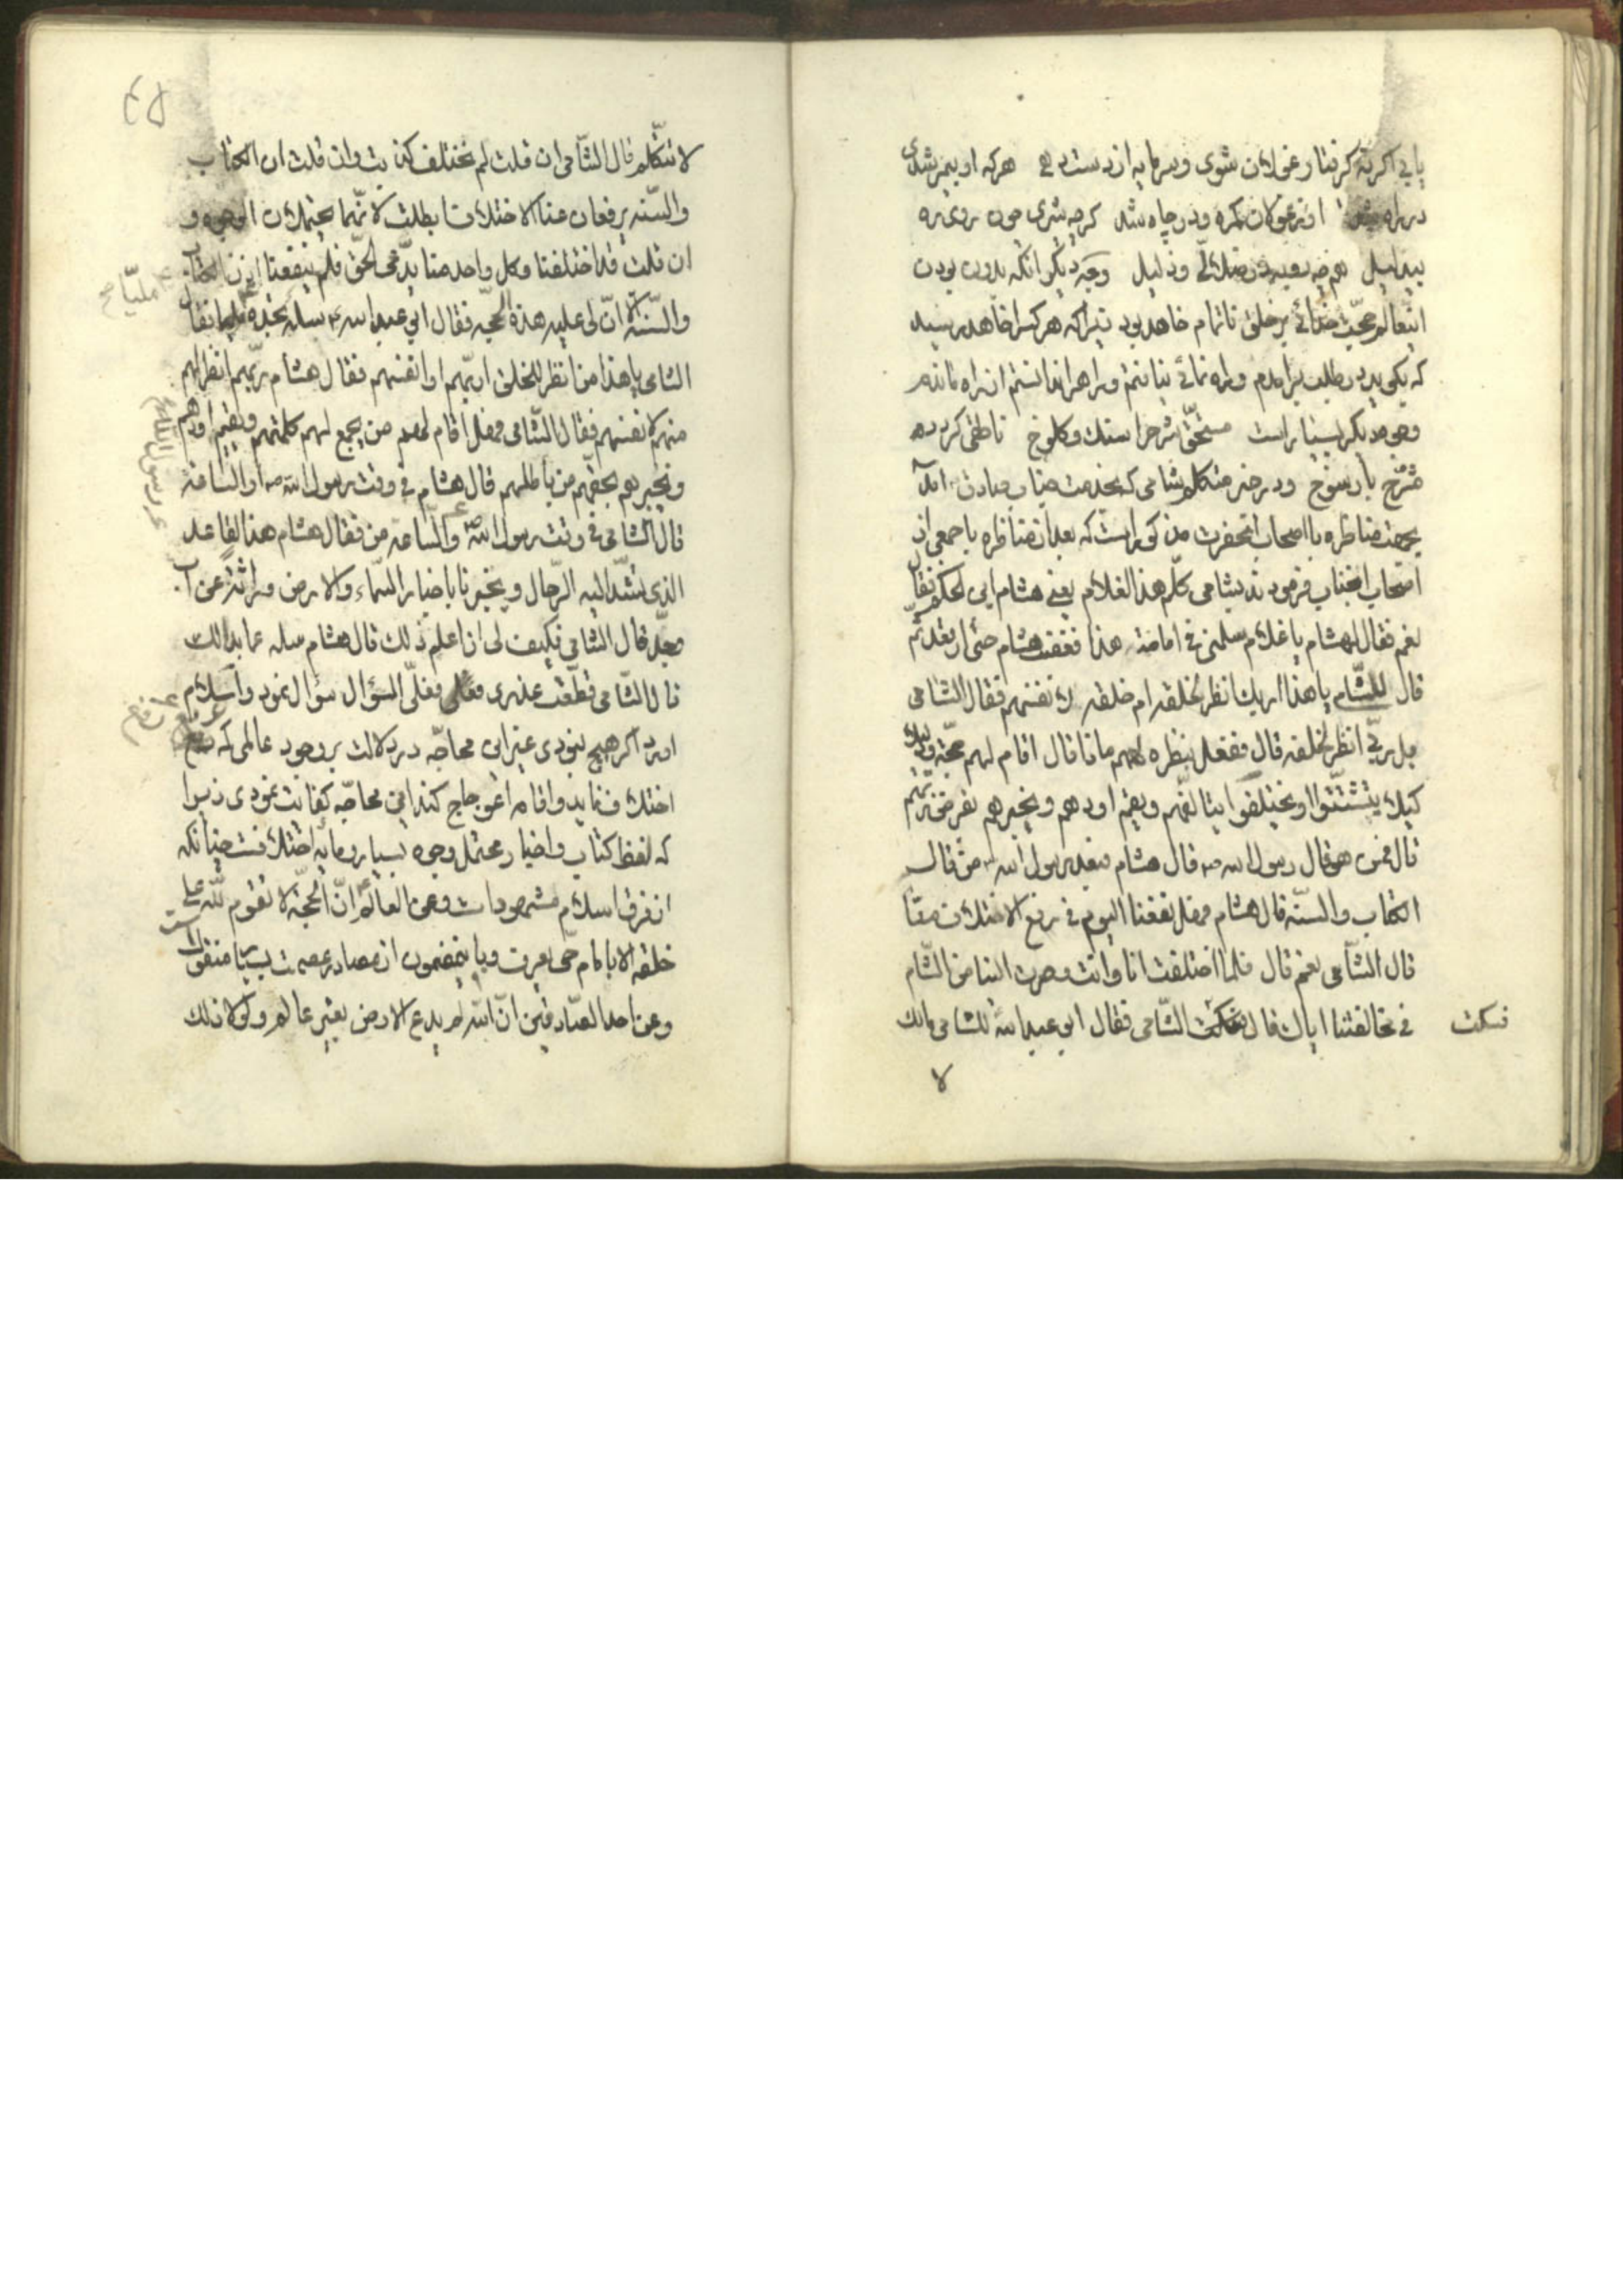 یابی اگر نه گرفتار غولان شوی و سرمایه از دست دهی هر که او بیمرشدی
در راه شد او ز غولان گمره و در چاه شد گر چه شیری چون روی ره
بیدلیل همچو روبه در ضلالی و ذلیل وجه دیگر آنکه بدون بودن
این عالم حجت خدائی بر خلق ناتمام خواهد بود زیرا که هر کس را خواهد رسید
که بگوید در طلب برآمدم و راه نمائی نیافتم و راهرا ندانستم از راه ماندم
وجوه دیگر بسیار است مستحق شرح را سنگ و کلوخ ناطقی گردد
مشرح با رسوخ و در خبر متکلم شامی که بخدمت جناب صادق آمد
بجهت مناظره با اصحاب آنحضرت مذکور است که بعد از مناظره با جمعی از
اصحاب آنجناب فرمودند بشامی کلم هذا الغلام یعنی هشام ابن الحکم فقال
نعم فقال لهشام یا غلام سلنی فی امامة هذا فغضب هشام حتی ارتعد ثم
قال للشام یا هذا اربک انظر لخلقه ام خلقه لانفسهم فقال الشامی
بل ربی انظر لخلقه قال ففعل بنظره لهم ماذا قال اقام لهم حجة و دلیلا
کیلا یتشتتوا او یختلفوا یتالفهم و یقیم اودهم و یخبرهم بفرض ربهم
قال فمن هو قال رسول الله ص قال هشام فبعد رسول الله من قال
الکتاب و السنة قال هشام فهل نفعنا الیوم فی رفع الاختلاف عنا
قال الشامی نعم قال فلما اختلفت انا و انت و صرت الینا من الشام
فی مخالفتنا ایاک قال فسکت الشامی فقال ابو عبد الله للشامی مالک
فسکت
لا
لا تتکلم قال الشامی ان قلت لم نختلف کذبت و ان قلت ان الکتاب
و السنة یرفعان عنا الاختلاف ابطلت لانهما یحتملان الوجوه و
ان قلت قد اختلفنا و کل واحد منا یدعی الحق فلم ینفعنا اذن الکتاب
و السنة الا ان لی علیه هذه الحجة فقال ابو عبد الله ع سله تجده ملیا فقال
ملیا صح
الشامی یا هذا من انظر للخلق اربهم او انفسهم فقال هشام ربهم انظر لهم
منهم لانفسهم فقال الشامی فهل اقام لهم من یجمع لهم کلمتهم و یقیم اودهم
و یخبرهم بحقهم من باطلهم قال هشام فی وقت رسول الله ص او الساعة
قال الشامی فی وقت رسول الله ص و الساعة من فقال هشام هذا القاعد
الذی تشد الیه الرحال و یخبرنا باخبار السماء و الارض وراثة عن اب
عن جد قال الشامی فکیف لی ان اعلم ذلک قال هشام سله عما بدا لک
قال الشامی قطعت عذری فعلی فعلی السؤال سؤال نمود و اسلام
آورد اگر هیچ نبودی غیر این محاجه در دلالت بر وجود عالمی که رفع
اختلاف نماید و اقامه اعوجاج کند این محاجه کفایت نمودی زیرا
که لفظ کتاب و اخبار محتمل وجوه بسیار و مایه اختلافست چنانکه
از فرق اسلام مشهود است و عن العالم ع ان الحجة لا تقوم لله علی
خلقه الا بامام حی یعرف و باینمضمون از مصادر عصمت بسیار منقولست
و عن احد الصادقین ان الله لم یدع الارض بغیر عالم و لولا ذلک